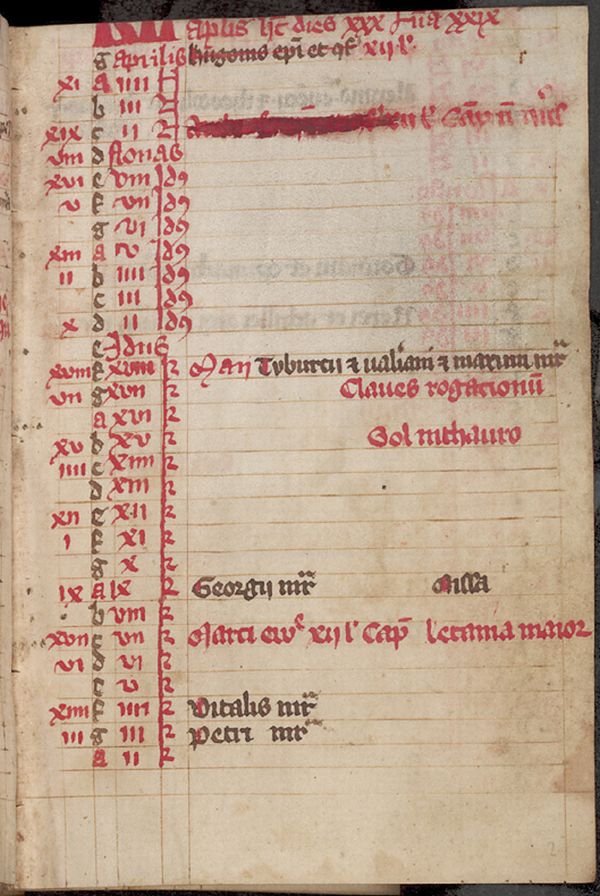 KL Aplis ht dies xxx Lua xxix
g aprilis hugonis epi et qf xij l'
xi a iiii N
b iii N
xix c ii N
viii d Nonas
xvi e viii Id9
v f vii Id9
g vi Id9
xiii a v Id9
ii b iiii Id9
c iii Id9
x d ii Id9
e Idus
xviii f xviii k Maii Tyburcii z ualiani z maximi mr
vii g xvii k Claues rogacionu
a xvi k
xv b xv k Sol in thauro
iiii c xiiii k
d xiii k
xii e xii k
i f xi k
g x k
ix a ix k Georgij mr Missa
b viii k
xvii c vii k Marci ew xij l' Cap letania maior
vi d vi k
e v k
xiiii f iiii k Vitalis mr
iii g iii k Petri mr
a ii k